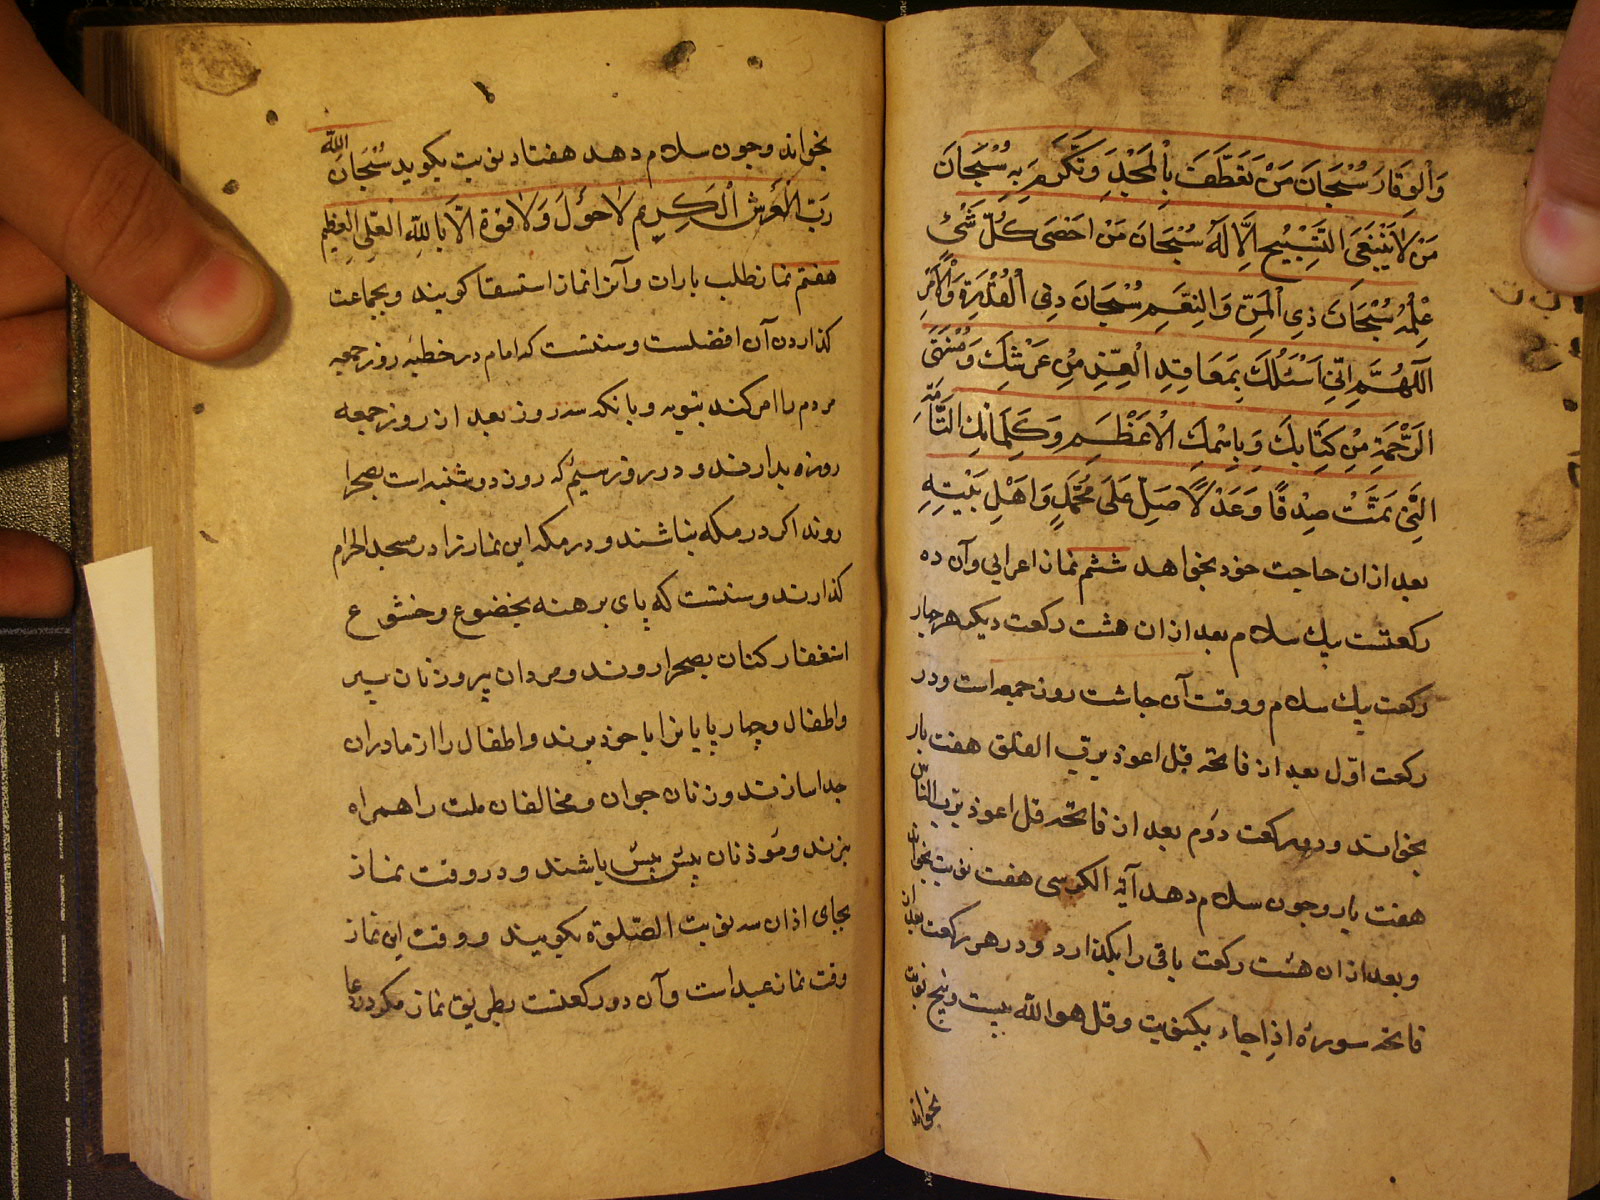 وَالْوَقَارَ سُبْحَانَ مَنْ تَعَطَّفَ بِالْمَجْدِ وَتَكَرَّمَ بِهِ سُبْحَانَ
مَنْ لَا يَنْبَغِى التَّسْبِيحُ اِلَّا لَهُ سُبْحَانَ مَنْ اَحْصَى كُلَّ شَىْءٍ
عِلْمُهُ سُبْحَانَ ذِى الْمَنِّ وَالنِّعَمِ سُبْحَانَ ذِى الْقُدْرَةِ وَالْاَمْرِ
اَللّٰهُمَّ اِنِّى اَسْئَلُكَ بِمَعَاقِدِ الْعِزِّ مِنْ عَرْشِكَ وَمُنْتَهَى
الرَّحْمَةِ مِنْ كِتَابِكَ وَبِاسْمِكَ الْاَعْظَمِ وَكَلِمَاتِكَ التَّامَّةِ
الَّتِى تَمَّتْ صِدْقًا وَعَدْلًا صَلِّ عَلَى مُحَمَّدٍ وَاَهْلِ بَيْتِهِ
بعد ازان حاجت خود بخواهد ششم نماز اعرابی وآن ده
رکعتست بیك سلام بعد ازان هشت رکعت دیکر هر چهار
رکعت بیك سلام ووقت آن چاشت روز جمعه است ودر
رکعت اوّل بعد از فاتحه قل اعوذ برب الفلق هفت بار
بخواند ودر رکعت دوم بعد از فاتحه قل اعوذ برب النّاس
هفت بار وچون سلام دهد آیة الکرسی هفت نوبت بخواند
وبعد ازان هشت رکعت باقی را بکذارد ودر هر رکعت بعد از
فاتحه سورهٔ اذا جاء یکنوبت وقل هو الله بیست وپنج نوبت
بخواند
بخواند وچون سلام دهد هفتاد نوبت بکوید سُبْحَانَ اللّٰه
رَبِّ الْعَرْشِ الْكَرِيمِ لَا حَوْلَ وَلَا قُوَّةَ اِلَّا بِاللّٰهِ الْعَلِىِّ الْعَظِيمِ
هفتم نماز طلب باران وآنرا نماز استسقا کویند وبجماعت
کذاردن آن افضلست وسنتست که امام در خطبهٔ روز جمعه
مردم را امر کند بتوبه وبانکه سه روز بعد از روز جمعه
روزه بدارند ودر روز سیم که روز دوشنبه است بصحرا
روند اکر در مکه نباشند ودر مکه این نماز را در مسجد الحرام
کذارند وسنتست که پای برهنه بخضوع وخشوع
استغفار کنان بصحرا روند ومردان پیر وزنان پیر
واطفال وچهار پایانرا با خود برند واطفال را از مادران
جدا سازند وزنان جوان ومخالفان ملت را همراه
نبرند ومؤذنان پیش پیش باشند ودر وقت نماز
بجای اذان سه نوبت الصّلوة بکویند ووقت این نماز
وقت نماز عید است وآن دو رکعتست بطریق نماز مکر در دعا